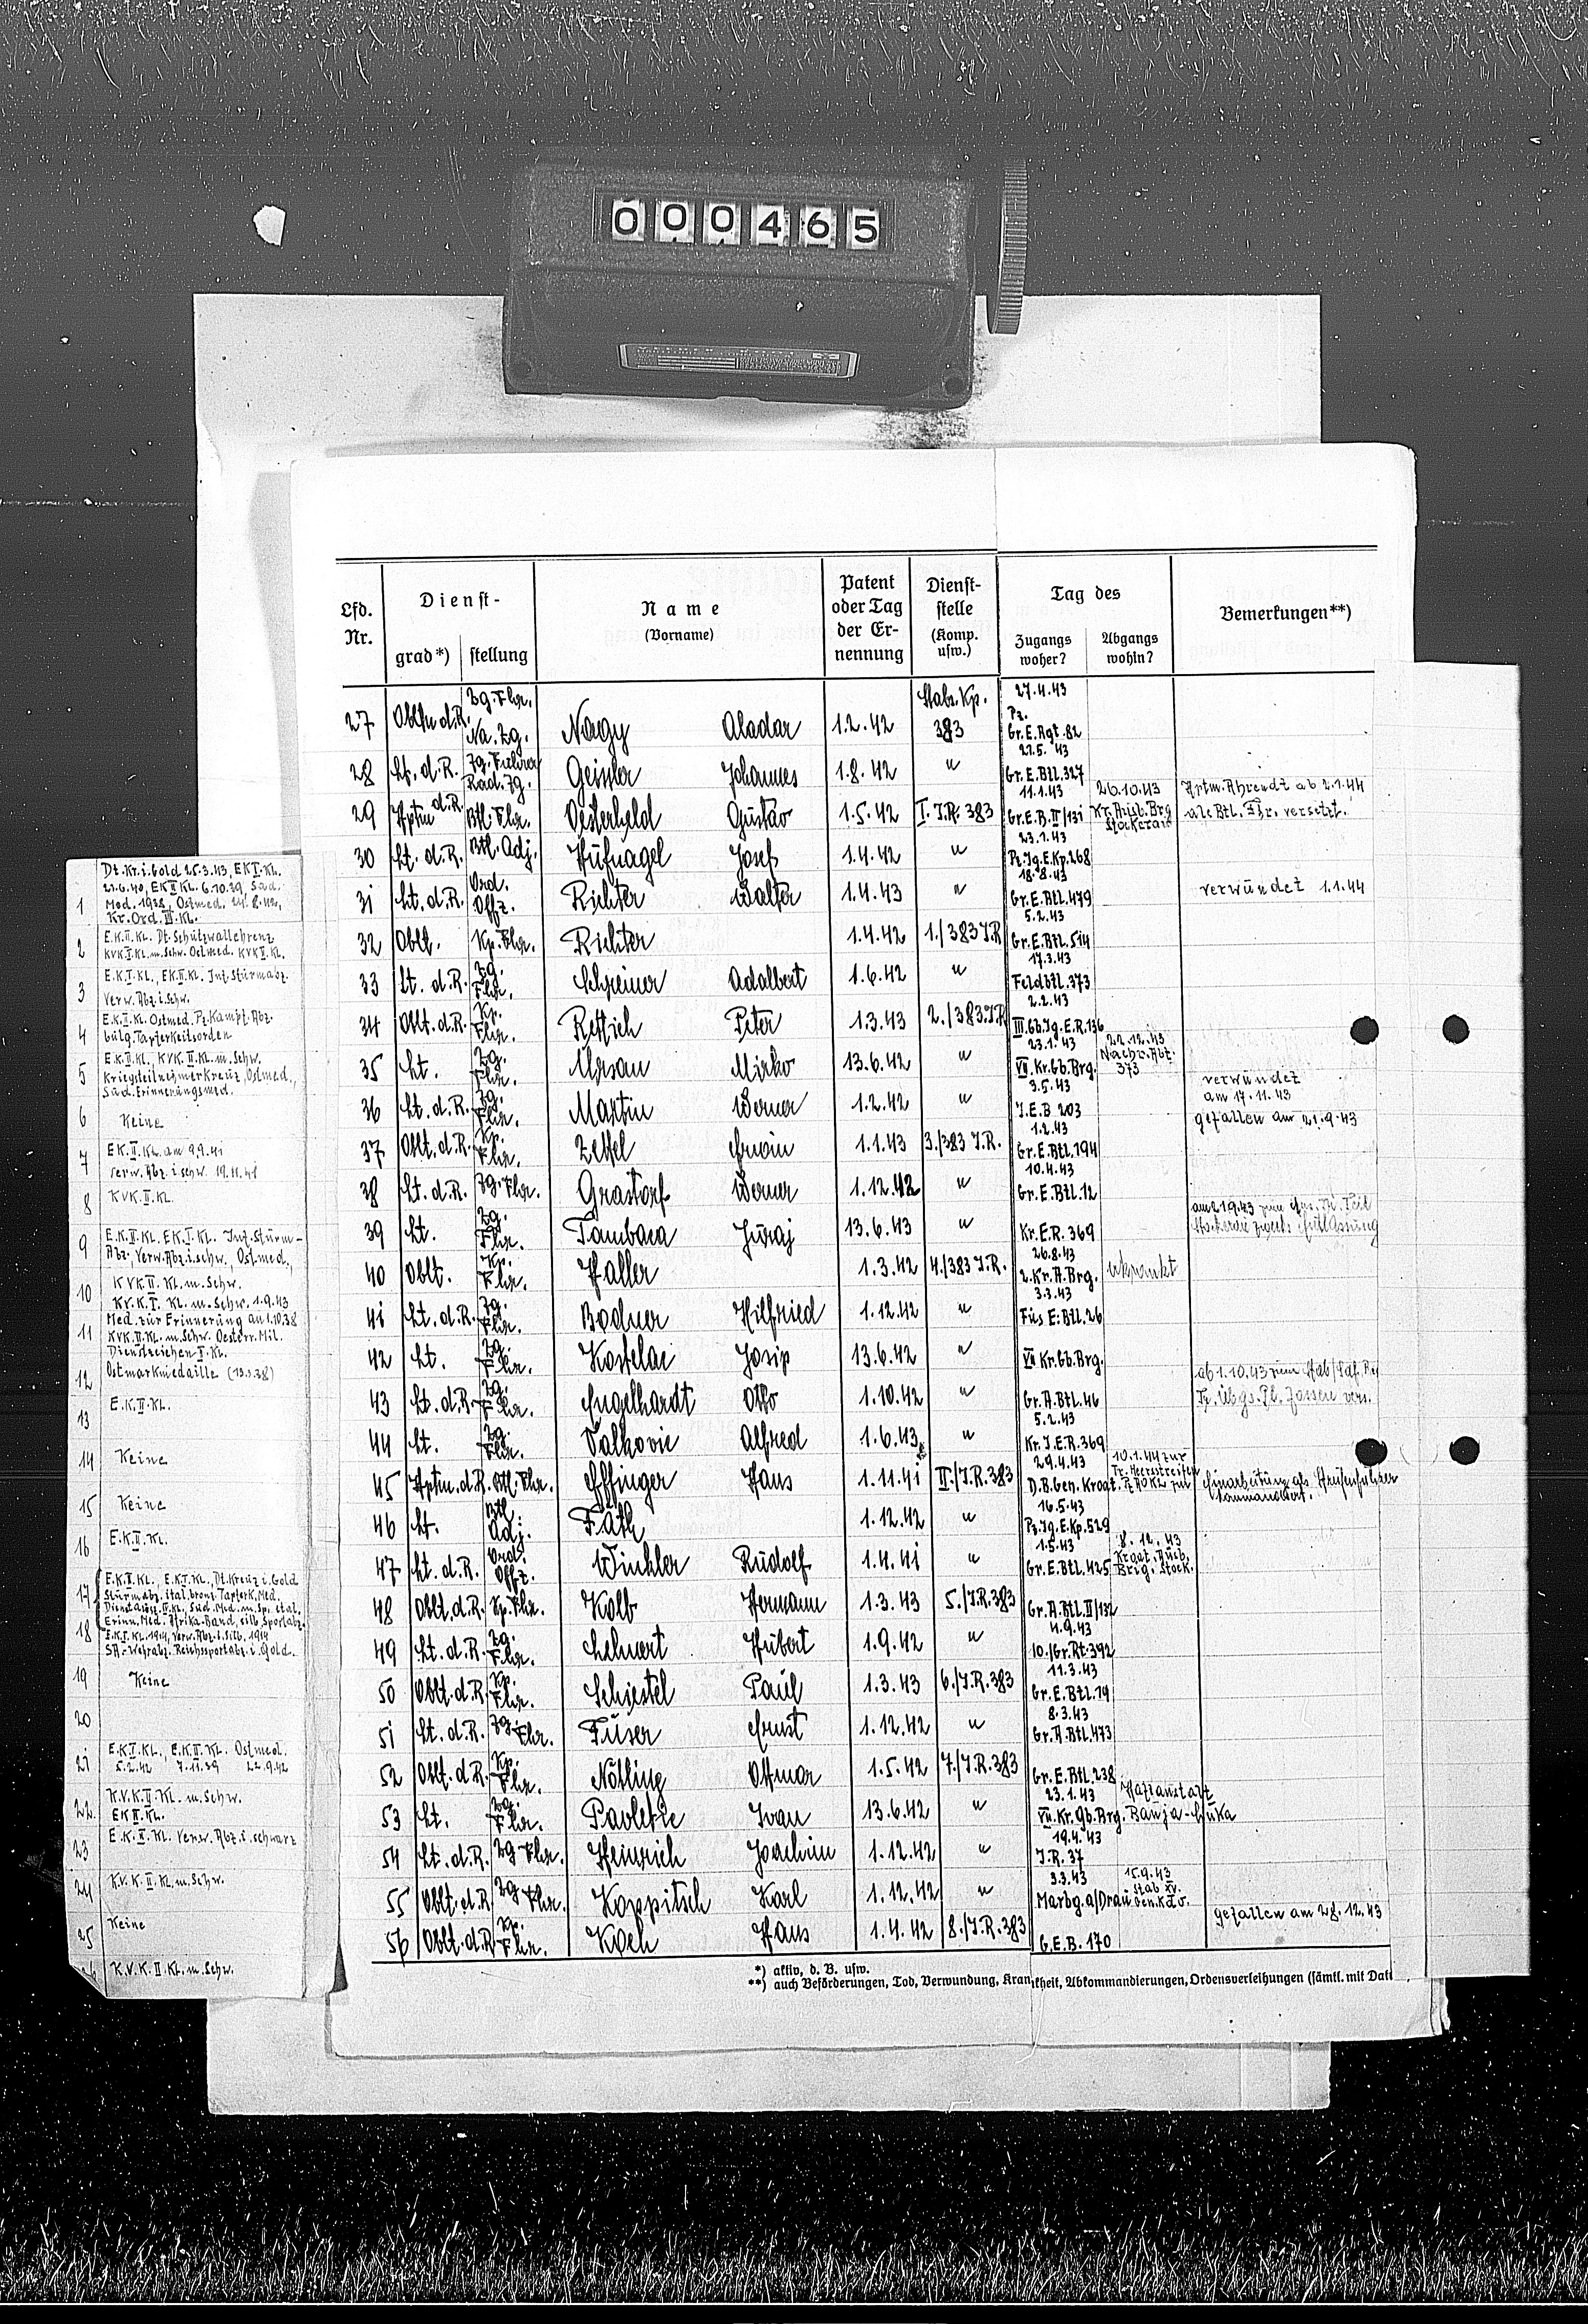 000465
Lfd. Nr.
Dienst-
grad*) stellung
Name
(Vorname)
Patent
oder Tag
der Er-
nennung
Dienst-
stelle
(Komp.
usw.)
Tag des
Zugangs
woher?
Abgangs
wohin?
Bemerkungen**)
27 Obltn d.R. Zg.Fhr. Na.Zg. Nagy Aladar 1.2.42 Stabs.Kp. 383 27.4.43 Pz. Gr.E.Rgt.82
28 Lt.d.R. Zg.Führer Rad.Zg. Geissler Johannes 1.8.42 " 21.5.43 Gr.E.Btl.327
29 Hptm d.R. Btl.Fhr. Oesterheld Gustav 1.5.42 I.J.R.383 11.1.43 Gr.E.B.II/131 26.10.43 Kr.Ausb.Brg Stockerau Hptm.Ahrendt ab 2.1.44 als Btl.Fhr. versetzt.
30 Lt.d.R. Btl.Adj. Hüfnagel Josef 1.4.42 " 23.1.43 Pz.Jg.E.Kp.268
31 Lt.d.R. Ord. Offz. Richter Walter 1.4.43 " 18.8.43 Gr.E.Btl.479 verwundet 1.1.44
32 Oblt. Kp.Fhr. Richter 1.4.42 1./383 J.R 5.2.43 Gr.E.Btl.514
33 Lt.d.R. Zg. Fhr. Schreiner Adalbert 1.6.42 " 17.3.43 Feldbtl.373
34 Oblt.d.R. Kp. Fhr. Rettich Peter 1.3.43 2./383 J.R 2.2.43 III.Gb.Jg.E.R.136
35 Lt. Zg. Fhr. Mrsan Mirko 13.6.42 " 23.1.43 VII.Kr.Gb.Brg. 22.12.43 Nachr.Abt. 373
36 Lt.d.R. Zg. Fhr. Martin Werner 1.2.42 " 3.5.43 J.E.B 203 verwundet am 17.11.43
37 Oblt.d.R. Kp. Fhr. Zettel Erwin 1.1.43 3./383 J.R. 1.2.43 Gr.E.Btl.194 gefallen am 21.9.43
38 Lt.d.R. Zg.Fhr. Grastorf Werner 1.12.42 " 10.4.43 Gr.E.Btl.12
39 Lt. Zg. Fhr. Tambaca Juraj 13.6.43 " Kr.E.R.369
40 Oblt. Kp. Fhr. Haller 1.3.42 4./383 J.R. 26.8.43 2.Kr.A.Brg.
41 Lt.d.R. Zg. Fhr. Bodner Hilfried 1.12.42 " 3.3.43 Füs E.Btl.26
42 Lt. Zg. Fhr. Kostelac Josip 13.6.42 " VII Kr.Gb.Brg.
43 Lt.d.R. Zg. Fhr. Engelhardt Otto 1.10.42 " Gr.A.Btl.46 ab 1.10.43 zum Stab
44 Lt. Zg. Fhr. Valkovic Alfred 1.6.43 " 5.2.43 Kr.J.E.R.369
45 Hptm.d.R. Btl.Fhr. Effinger Hans 1.11.41 II./J.R.383 29.4.43 D.B.Gen.Kroat. 10.1.44 zur Tr.Heeresstreifen Einarbeitung als Streifenführer kommandiert.
46 Lt. Btl. Adj. Fäth 1.12.42 " 16.5.43 Pz.Jg.E.Kp.529
47 Lt.d.R. Ord. Offz. Winkler Rudolf 1.4.41 " 1.5.43 Gr.E.Btl.425 8.12.43 Kroat.Ausb. Brig.Stock.
48 Oblt.d.R. Kp.Fhr. Kolb Hermann 1.3.43 5./J.R.383 Gr.A.Btl.II/132
49 Lt.d.R. Zg. Fhr. Lehnert Hubert 1.9.42 " 4.9.43 10./Gr.Rt.392
50 Oblt.d.R. Kp. Fhr. Schiestel Paul 1.3.43 6./J.R.383 11.3.43 Gr.E.Btl.19
51 Lt.d.R. Zg.Fhr. Füser Ernst 1.12.42 " 8.3.43 Gr.A.Btl.473
52 Oblt.d.R. Kp. Fhr. Nötling Ottmar 1.5.42 7./J.R.383 Gr.E.Btl.238
53 Lt. Zg. Fhr. Pavletic Ivan 13.6.42 " 23.1.43 VII.Kr.Gb.Brg. Haftanstalt Banja-Luka
54 Lt.d.R. Zg Fhr. Heinrich Joachim 1.12.42 " 19.4.43 J.R.37
55 Oblt.d.R Zg Fhr. Koppitsch Karl 1.12.42 " 3.3.43 Marbg.a/Drau 15.9.43 Stab XV. Gen.Kdo.
56 Oblt.d.R Kp. Fhr. Koch Hans 1.4.42 8./J.R.383 G.E.B.170 gefallen am 28.12.43
*) aktiv, d. B. usw.
**) auch Beförderungen, Tod, Verwundung, Krankheit, Abkommandierungen, Ordensverleihungen (sämtl. mit Dat
1 Dt.Kr.i.Gold 25.3.43, EK I.Kl.
21.6.40, EK II Kl. 6.10.39, Sud.
Med. 1938, Ostmed. 24.8.42,
Kr.Ord.III.Kl.
2 E.K.II.Kl. Dt.Schutzwallehrenz
KVK I.Kl.m.Schw. Ostmed. KVK II.Kl.
3 E.K.I.Kl., EK.II.Kl. Inf.Sturmabz.
Verw.Abz.i.Schw.
4 E.K.II.Kl. Ostmed. Pz.Kampf.Abz.
bulg.Tapferkeitsorden
5 E.K.II.Kl. KVK.II.Kl.m.Schw.
Kriegsteilnehmerkreuz, Ostmed.,
Sud.Erinnerungsmed.
6 Keine
7 EK.II.Kl. am 9.9.41
Verw.Abz.i.schw. 19.11.41
8 KVK.II.Kl.
9 E.K.II.Kl. EK.I.Kl. Inf.Sturm-
Abz., Verw.Abz.i.schw., Ostmed.,
10 KVK II. Kl.m.Schw.
Kr.K.I. Kl.m.Schw. 1.9.43
11 Med.zur Erinnerung an 1.10.38
KVK.II.Kl.m.Schw. Oesterr.Mil.
Dienstzeichen I.Kl.
12 Ostmarkmedaille (13.3.38)
13 E.K.II.Kl.
14 Keine
15 Keine
16 E.K.II.Kl.
17 E.K.II.Kl., E.K.I.Kl., Dt.Kreuz i.Gold
Sturmabz. ital.bronz.Tapferk.Med.
Erinn.Med.Afrika-Band, silb.Sportabz.
18 E.K.I.Kl.1914, Verw.Abz.i.Silb. 1914
SA-Wehrabz. Reichssportabz.i.Gold.
19 Keine
20
21 E.K.I.Kl., E.K.II.Kl. Ostmed.
5.2.42 7.11.39 22.9.42
22 K.V.K.II.Kl.m.Schw.
EK II.Kl.
23 E.K.II.Kl. Verw.Abz.i.schwarz
24 K.V.K.II.Kl.m.Schw.
25 Keine
K.V.K.II.Kl.m.Schw.